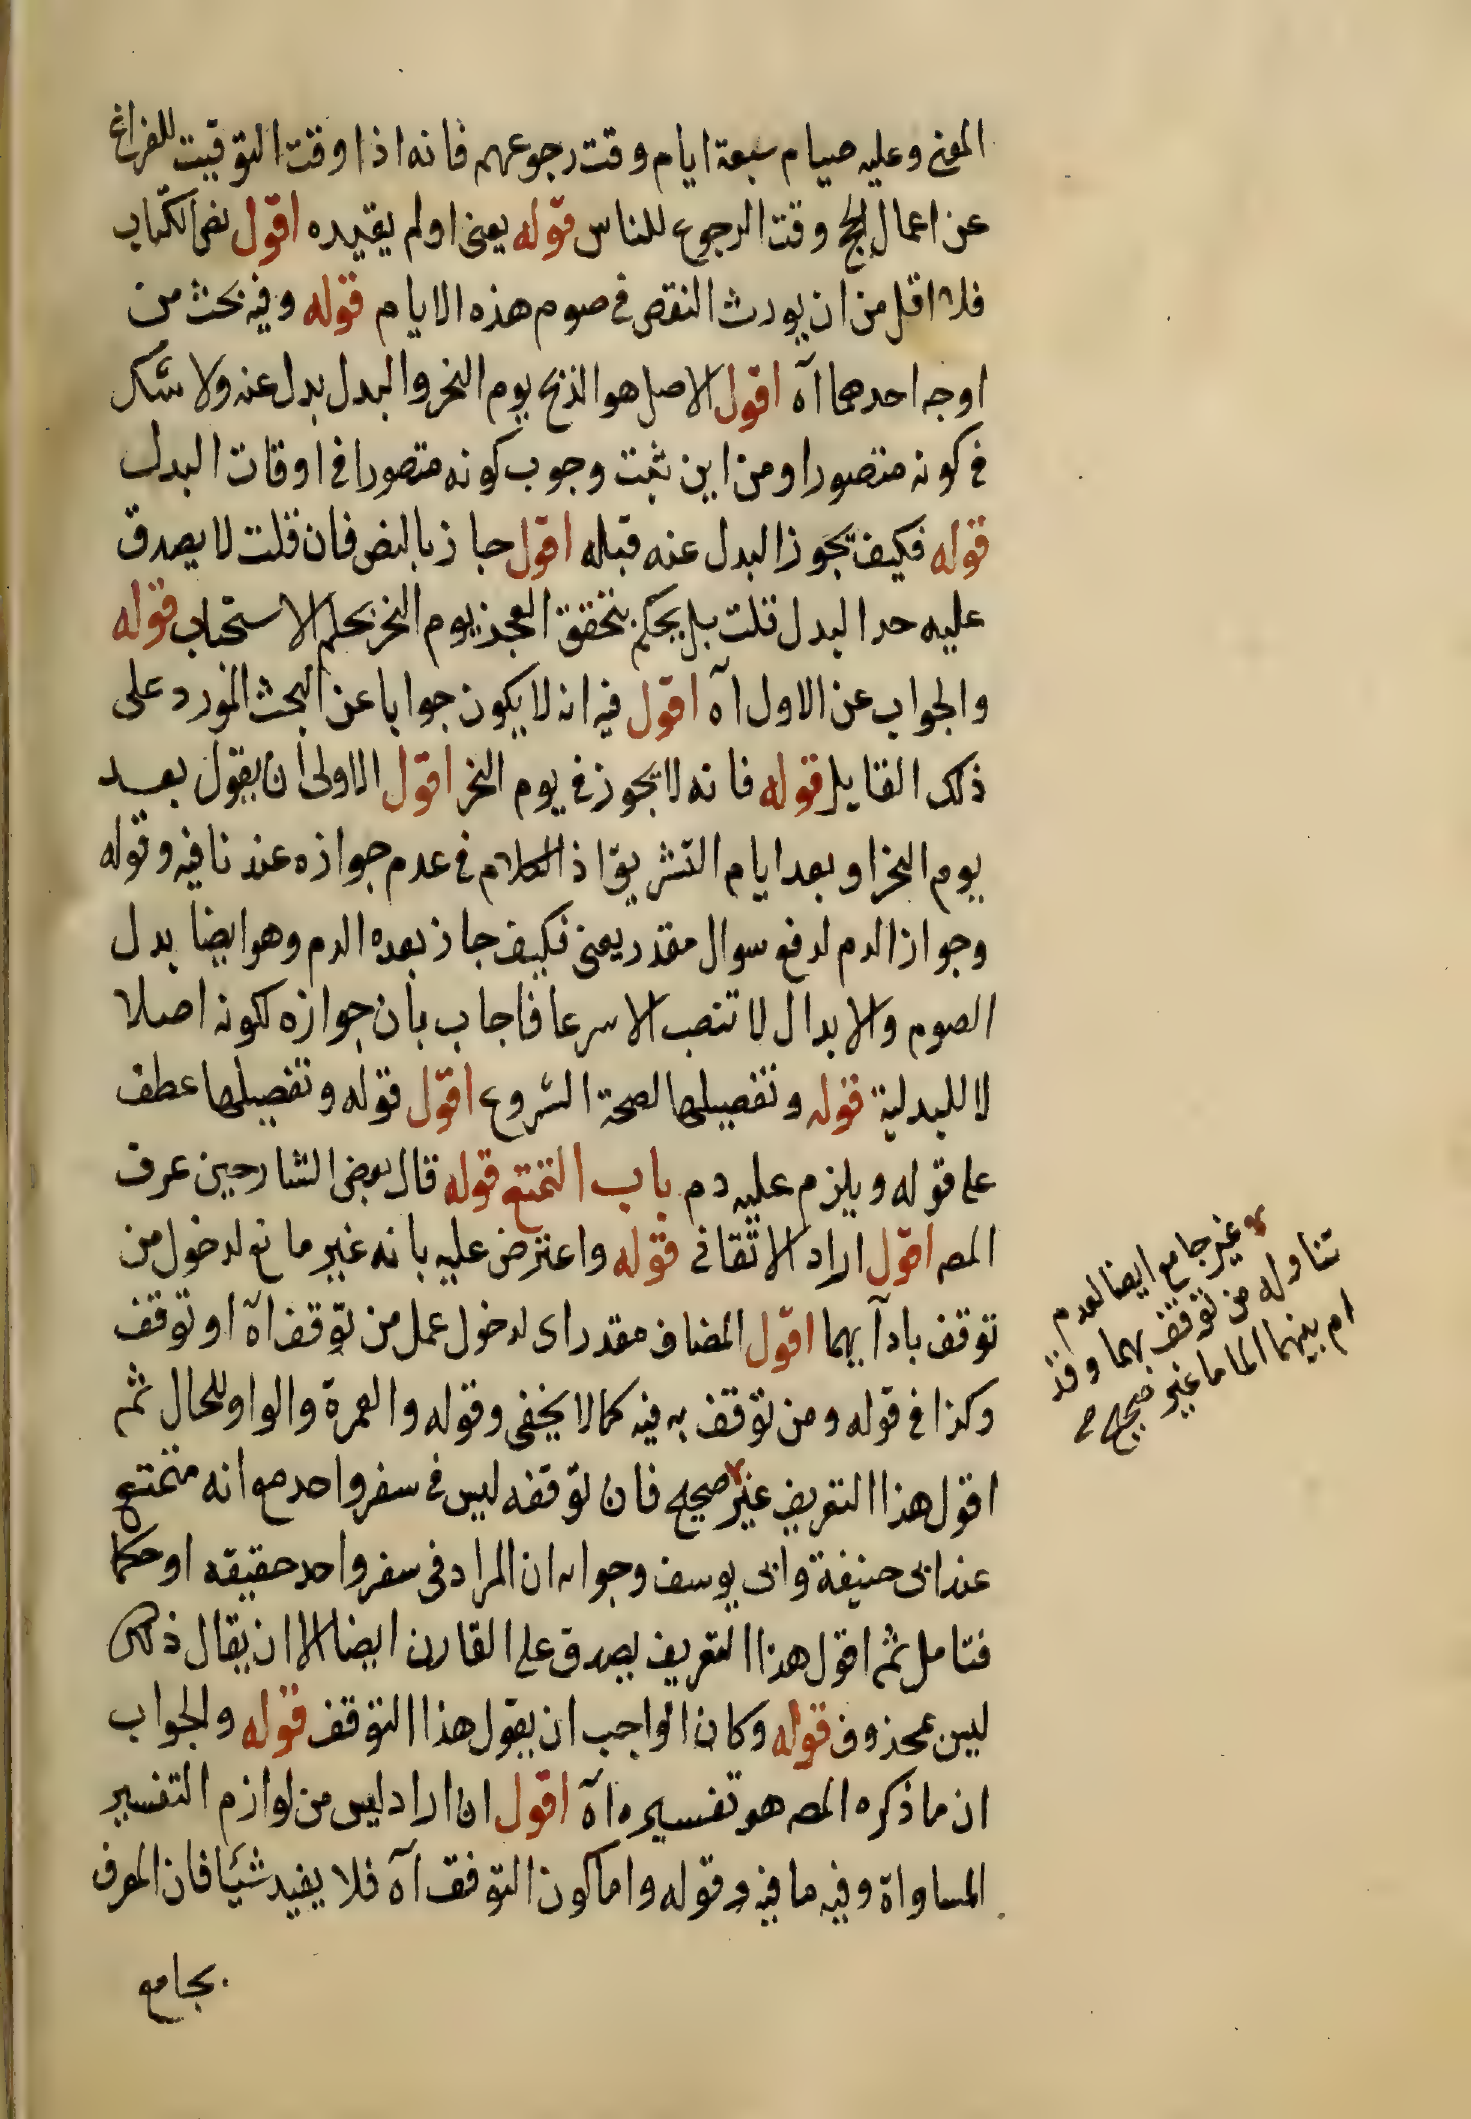 المعنى وعليه صيام سبعة ايام وقت رجوعهم فانه اذا وقت التوقيت للفراغ
عن اعمال الحج وقت الرجوع للناس قوله يعنى اولم يقيده اقول نص الكتاب
فلا اقل من ان يورث النقص فى صوم هذه الايام قوله وفيه بحث من
اوجه احدهما آه اقول الاصل هو الذبح يوم النحر والبدل بدل عنه ولا شك
فى كونه متصورا ومن اين ثبت وجوب كونه متصورا فى اوقات البدل
قوله فكيف يجوز البدل عنه قبله اقول جاز بالنص فان قلت لا يصدق
عليه حد البدل قلت بل يحكم بتحقق العجز يوم النحر بحكم الاستصحاب قوله
والجواب عن الاول آه اقول فيه انه لا يكون جوابا عن البحث المورد على
ذلك القايل قوله فانه لا يجوز فى يوم النحر اقول الاولى ان يقول بعد
يوم النحر او بعد ايام التشريق اذ الكلام فى عدم جوازه عندنا فيه وقوله
وجواز الدم لدفع سوال مقدر يعنى فكيف جاز بعده الدم وهو ايضا بدل
الصوم والابدال لا تنصب الا سرعا فاجاب بان جوازه لكونه اصلا
لا للبدلية قوله وتفصيلها لصحة الشروع اقول قوله وتفصيلها عطف
على قوله ويلزم عليه دم باب التمتع قوله قال بعض الشارحين عرف
المصه اقول اراد الاتقانى قوله واعترض عليه بانه غير مانع لدخول من
توقف بادآيهما اقول المضاف مقدر اى لدخول عمل من توقف آه او توقف
وكذا فى قوله ومن توقف به فيه كما لا يخفى وقوله والعمرة والواو للحال ثم
اقول هذا التعريف غير صحيح فان توقفه ليس فى سفر واحد مع انه متمتع
عند ابى حنيفة وابى يوسف وجوابه ان المراد فى سفر واحد حقيقه او حكما
فتامل ثم اقول هذا التعريف يصدق على القارن ايضا الا ان يقال ذلك
ليس بمحذوف قوله وكان الواجب ان يقول هذا التوقف قوله والجواب
ان ما ذكره المصه هو تفسيره آه اقول ان اراد ليس من لوازم التفسير
المساواة وفيه ما فيه وقوله واما كون التوفق آه فلا يفيد شيئا فان المعرف
بجامع
غير جامع ايضا لعدم
تناوله من توقف بهما وقد
الم بينهما الماما غير صحيح